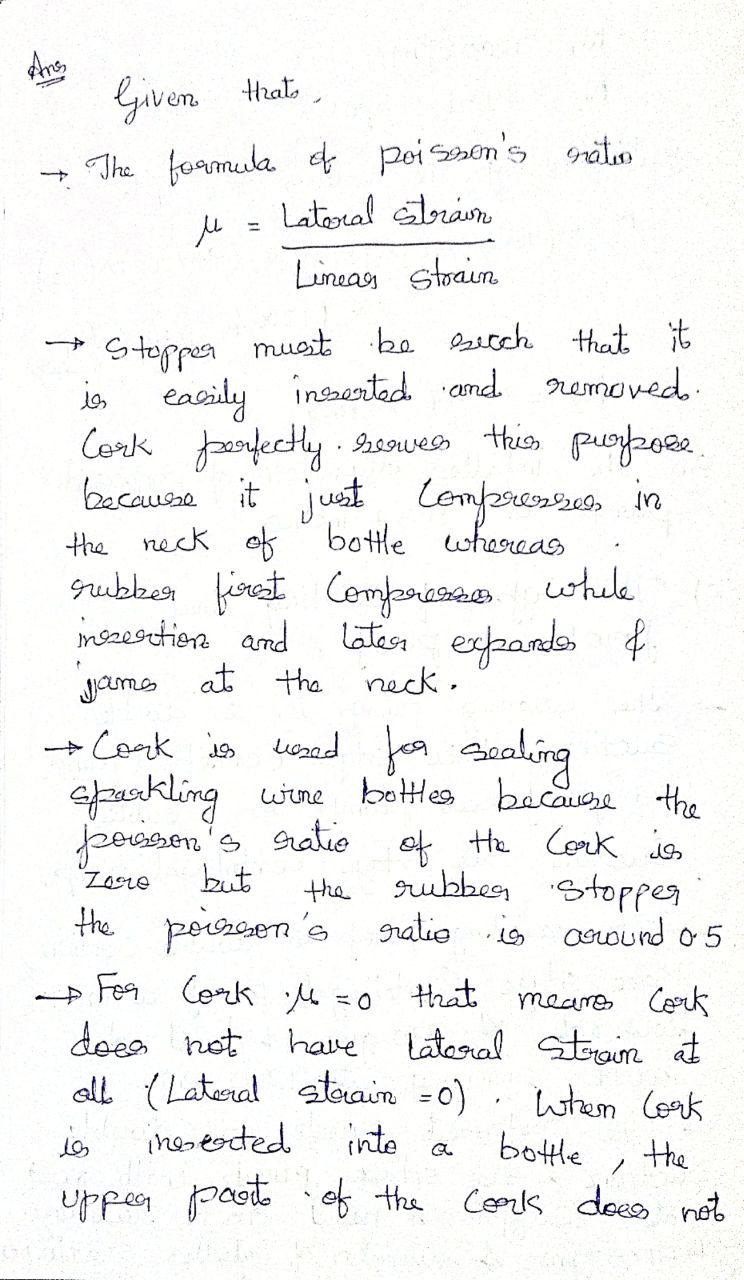 Ans
Given that,
→ The formula of poisson's ratio
μ = Lateral strain
Linear strain
→ Stopper must be such that it
is easily inserted and removed.
Cork perfectly serves this purpose
because it just compresses in
the neck of bottle whereas
rubber first compresses while
insertion and later expands &
jams at the neck.
→ Cork is used for sealing
sparkling wine bottles because the
poisson's ratio of the Cork is
Zero but the rubber stopper
the poisson's ratio is around 0.5
→ For Cork μ = 0 that means Cork
does not have Lateral strain at
all (Lateral strain = 0). When Cork
is inserted into a bottle, the
upper part of the Cork does not